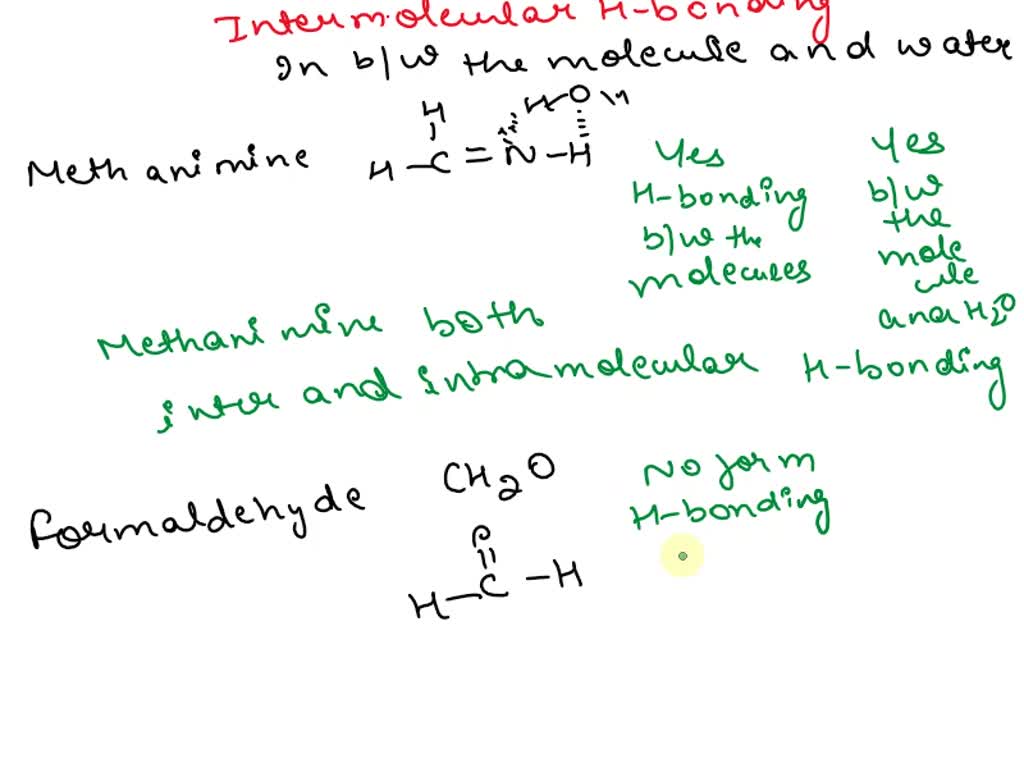 Intermolecular H-bonding
In b/w the molecule and water
H H-O H
Methanimine H-C=N-H
Yes Yes
H-bonding b/w
b/w the the
molecules mole
cule
and H2O
Methanimine both
inter and intramolecular H-bonding
Formaldehyde CH2O No form
H-bonding
O
H-C-H